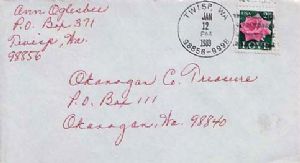 Ann Oglesbee
P.O. Box 371
Twisp, Wa.
98856
TWISP, WA
JAN
12
PM
1989
98856-9998
USA
LOVE
Okanogan Co. Treasure
P.O. Box 111
Okanogan, Wa. 98840